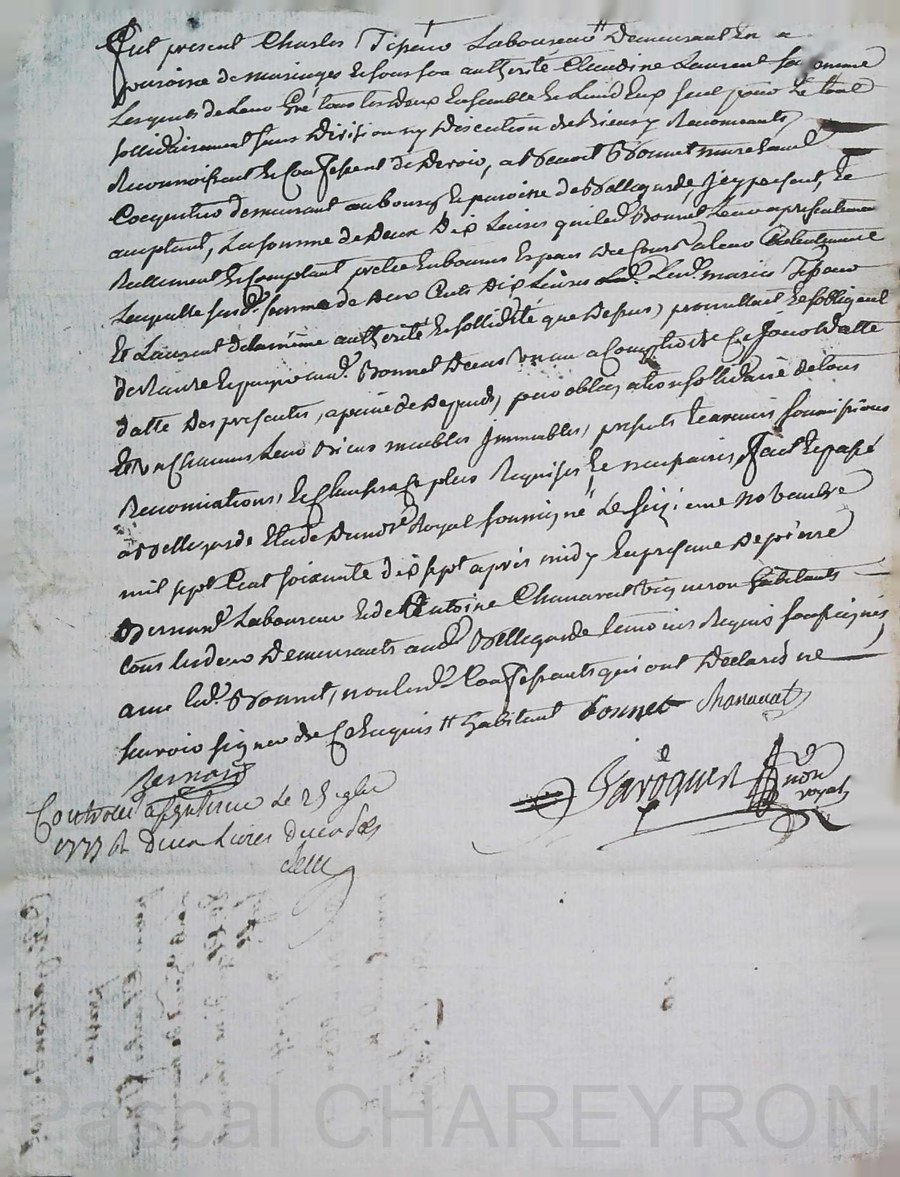 Fut present Charles Tipeur Laboureur Demeurant En a
paroisse de maringes Et sous son authorité Claudine Laurent sa femme
Lesquels de Leur gré tous les deux Ensemble Et Lun d'Eux seul pour Le tout
sollidairement sans Division ny Discution de Biens y Renonceants,
Reconnoissent Et Confessent de Devoir, a Benoit Bonnet marchand
Coquetier demeurant au bourg Et paroisse de Bellegarde, Icy present, Et
acceptant, La somme de Deux Dix Livres que led. Bonnet Leur a presentement
Reellement Et Comptant pretée En bonnes Especes De Cours a leur Contentement
Laquelle susd. somme de Deux Cents Dix Livres Lesd. mariés Tipeur
Et Laurent de la même authorité Et sollidité que Dessus, promettent Et s'obligent
de Rendre Et payer aud. Bonnet Dans un an a Compter de Ce Jourd
datte Des presentes, a peine de Depends, pour obligation sollidaire de tous
Et un Chacuns Leurs Biens meubles Immeubles, presents Et avenir soumissions
Renonciations, Et Clauses Ce plus Requises Et necessaires, fait Et passé
a Bellegarde Etude Du notre Royal soussigné Le seizieme novembre
mil sept Cent soixante dix sept après midy En presence De pierre
Bernard Laboureur Et de Antoine Chanavat Vigneron habitants
tous Les deux Demeurants aud. Bellegarde temoins Requis soussignés
avec led. Bonnet, non lesd. Confessants qui ont Declaré ne
sçavoir signer de Ce Enquis Et habitant bonnet Chanavat
Bernard
not
royal
Controllé a Le 25 9bre
1777 Livres
Pascal CHAREYRON